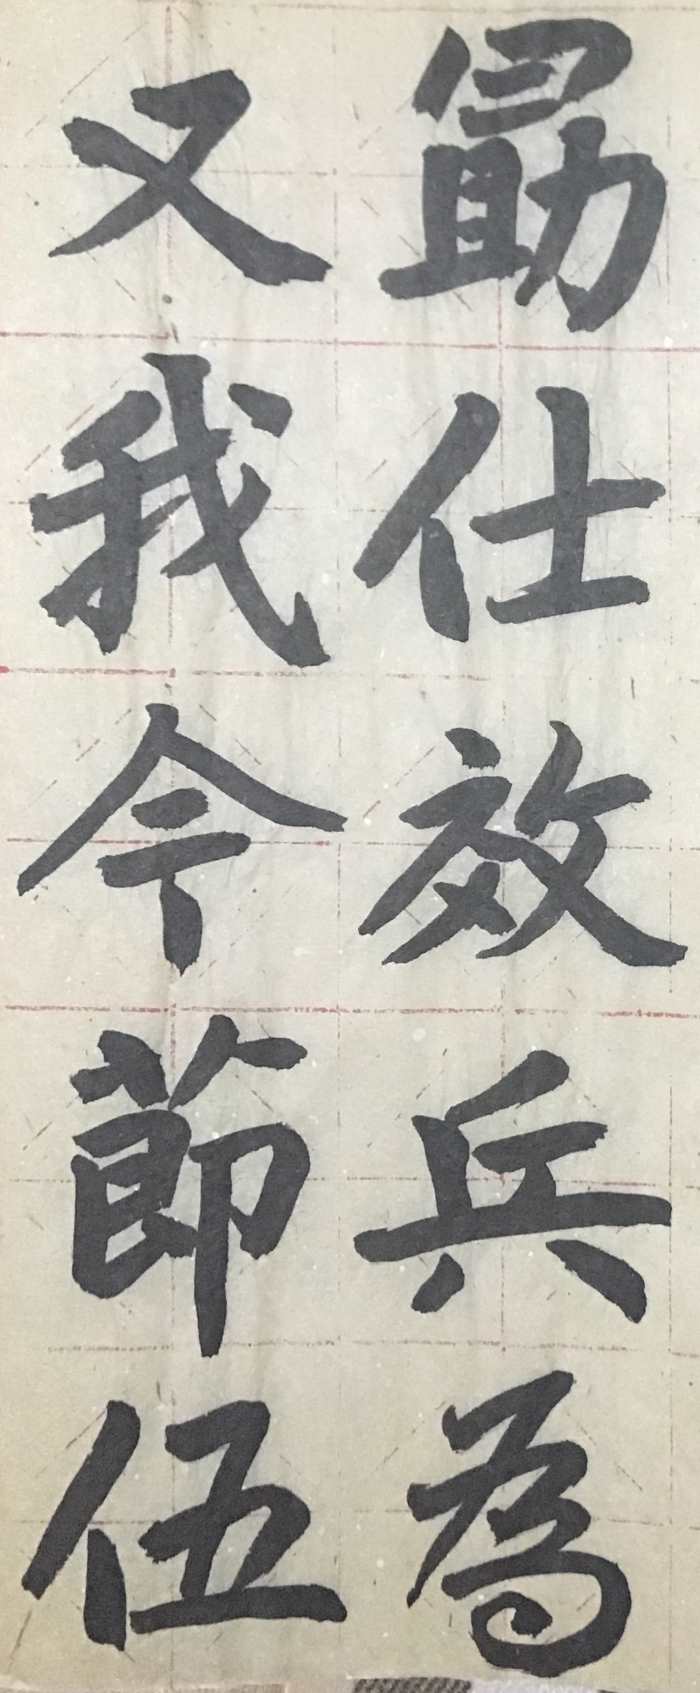 勗仕效兵為
又我今節伍